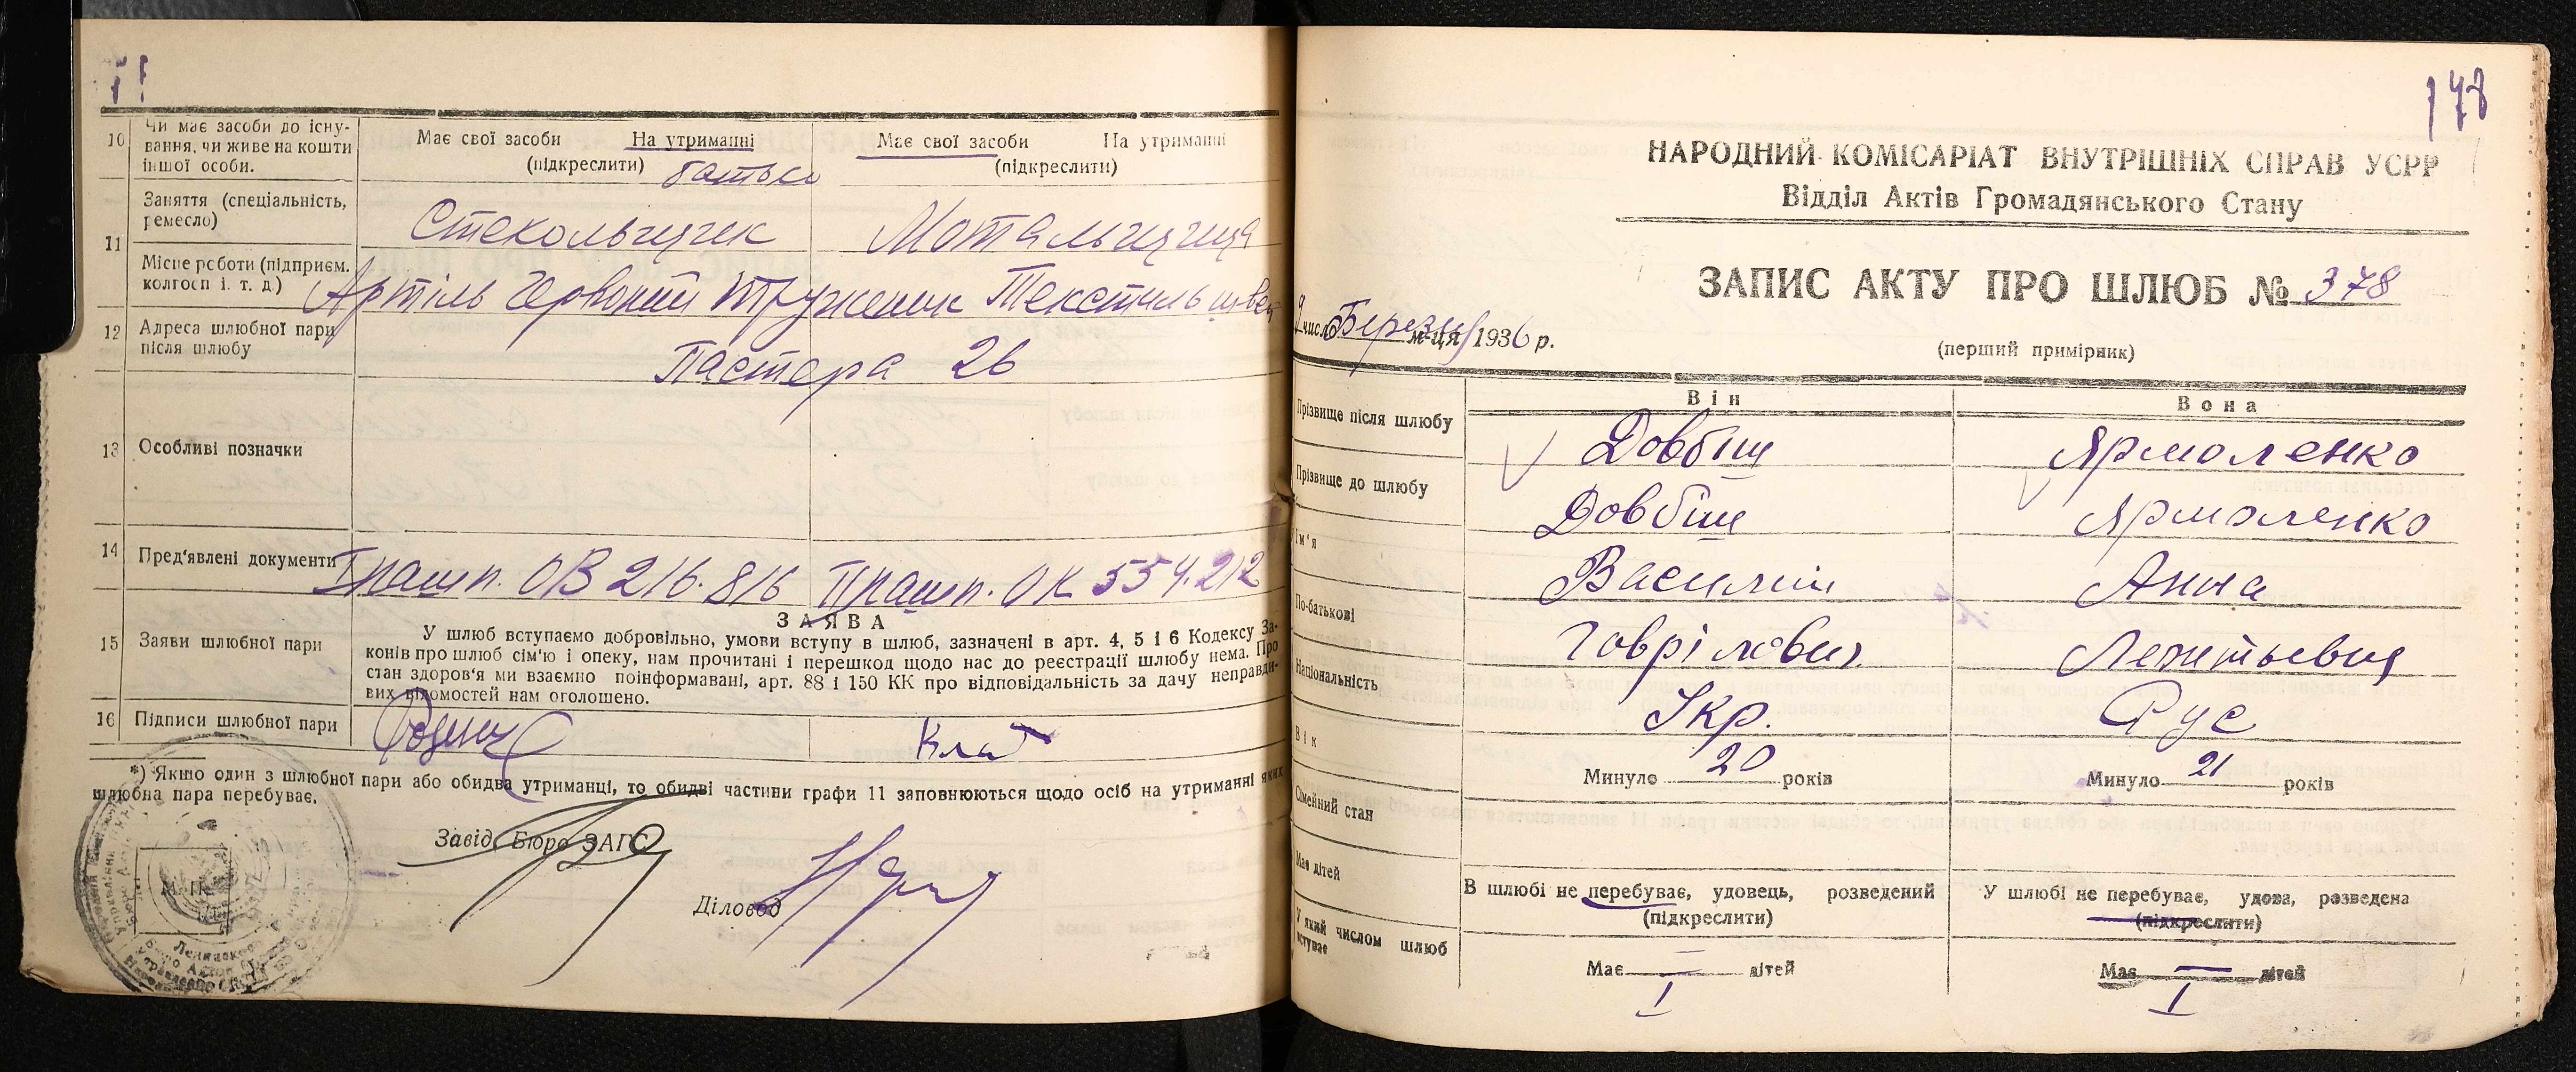 10 Чи має засоби до існу-
вання, чи живе на кошти
іншої особи.
Має свої засоби На утриманні
(підкреслити) батька
Має свої засоби На утриманні
(підкреслити)
11 Заняття (спеціальність,
ремесло)
Стекольщик Мотальщица
Місце роботи (підприєм.
колгосп і. т. д.)
Артіль Червоний Труженик Текстильшвей
12 Адреса шлюбної пари
після шлюбу
Пастера 26
13 Особливі позначки
14 Пред'явлені документи
Пашп. ОВ 216.816 Пашп. ОК 554.212
15 Заяви шлюбної пари
ЗАЯВА
У шлюб вступаємо добровільно, умови вступу в шлюб, зазначені в арт. 4, 5 і 6 Кодексу За-
конів про шлюб сім'ю і опеку, нам прочитані і перешкод щодо нас до реєстрації шлюбу нема. Про
стан здоров'я ми взаємно поінформавані, арт. 88 і 150 КК про відповідальність за дачу неправди-
вих відомостей нам оголошено.
16 Підписи шлюбної пари
*) Якшо один з шлюбної пари або обидва утриманці, то обидві частини графи 11 заповнюються щодо осіб на утриманні яких
шлюбна пара перебуває.
Завід. Бюро ЗАГС
Діловод
М. П.
178
НАРОДНИЙ КОМІСАРІАТ ВНУТРІШНІХ СПРАВ УСРР
Відділ Актів Громадянського Стану
ЗАПИС АКТУ ПРО ШЛЮБ № 378
9 числа Березня м-ця 1936 р.
(перший примірник)
Він Вона
Прізвище після шлюбу Довбіш Ярмоленко
Прізвище до шлюбу Довбіш Ярмоленко
Ім'я Василий Анна
По-батькові Гаврілович Леонтьевна
Національність Укр. Рус
Вік Минуло 20 років Минуло 21 років
Сімейний стан
В шлюбі не перебуває, удовець, розведений
(підкреслити)
У шлюбі не перебуває, удова, розведена
(підкреслити)
Має дітей
Має — дітей Має — дітей
У який числом шлюб
вступає
I I